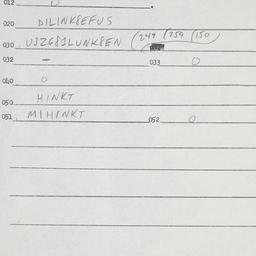 012 0
020 DILINK8EFUS
030 UJZG8JLUNK8EN (249 (259 (150
032 – 033 0
040 0
050 HINKT
051 MIHINKT 052 0